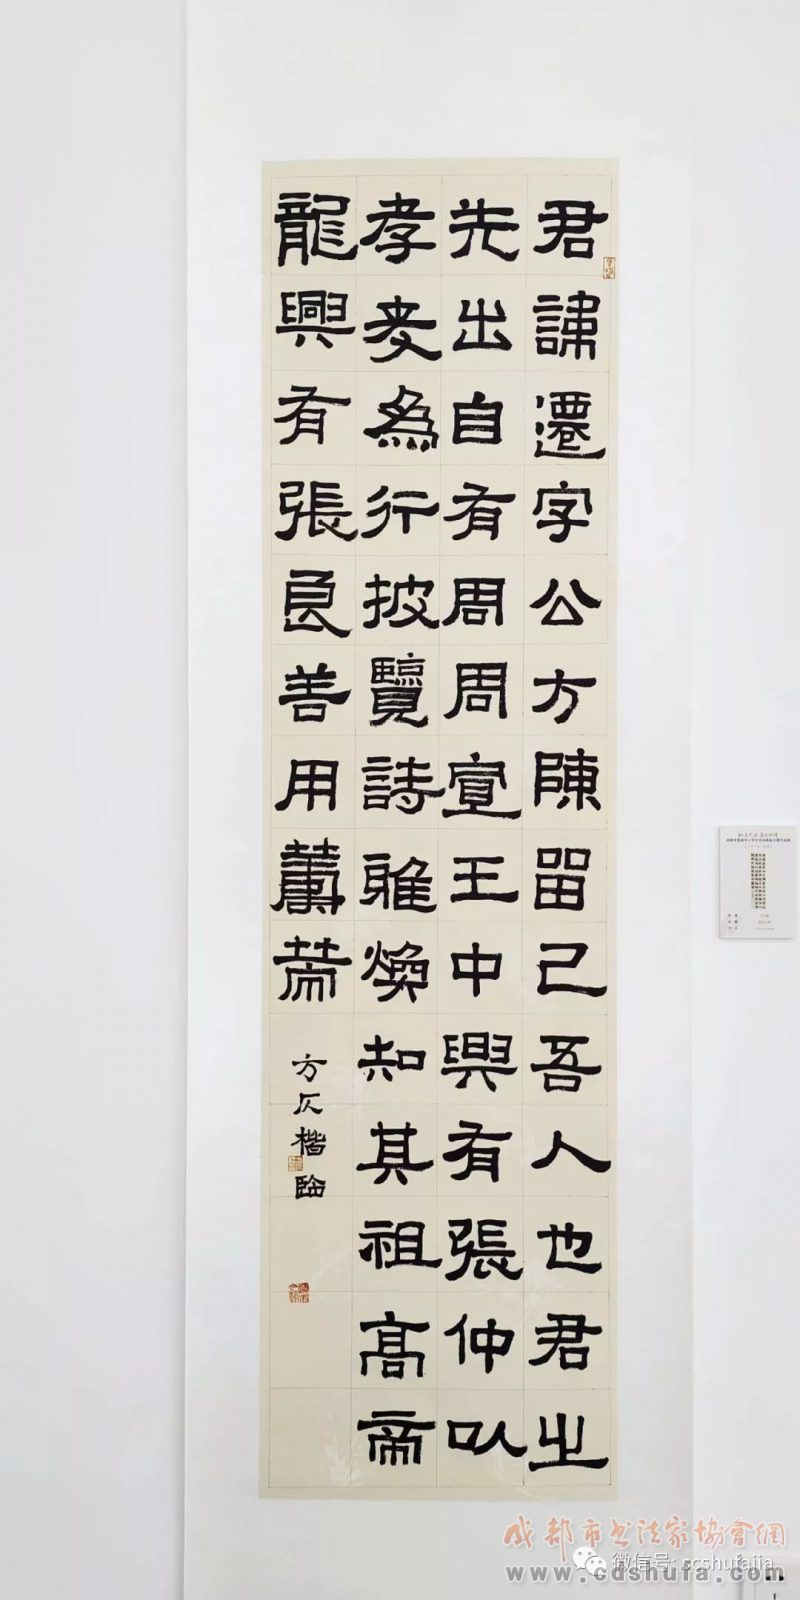 君諱遷字公方陳留己吾人也君之
先出自有周周宣王中興有張仲以
孝友為行披覽詩雅煥知其祖高帝
龍興有張良善用籌策
方仄楷臨
成都市书法家協會網
微信号: ccshufajia
www.cdshufa.com